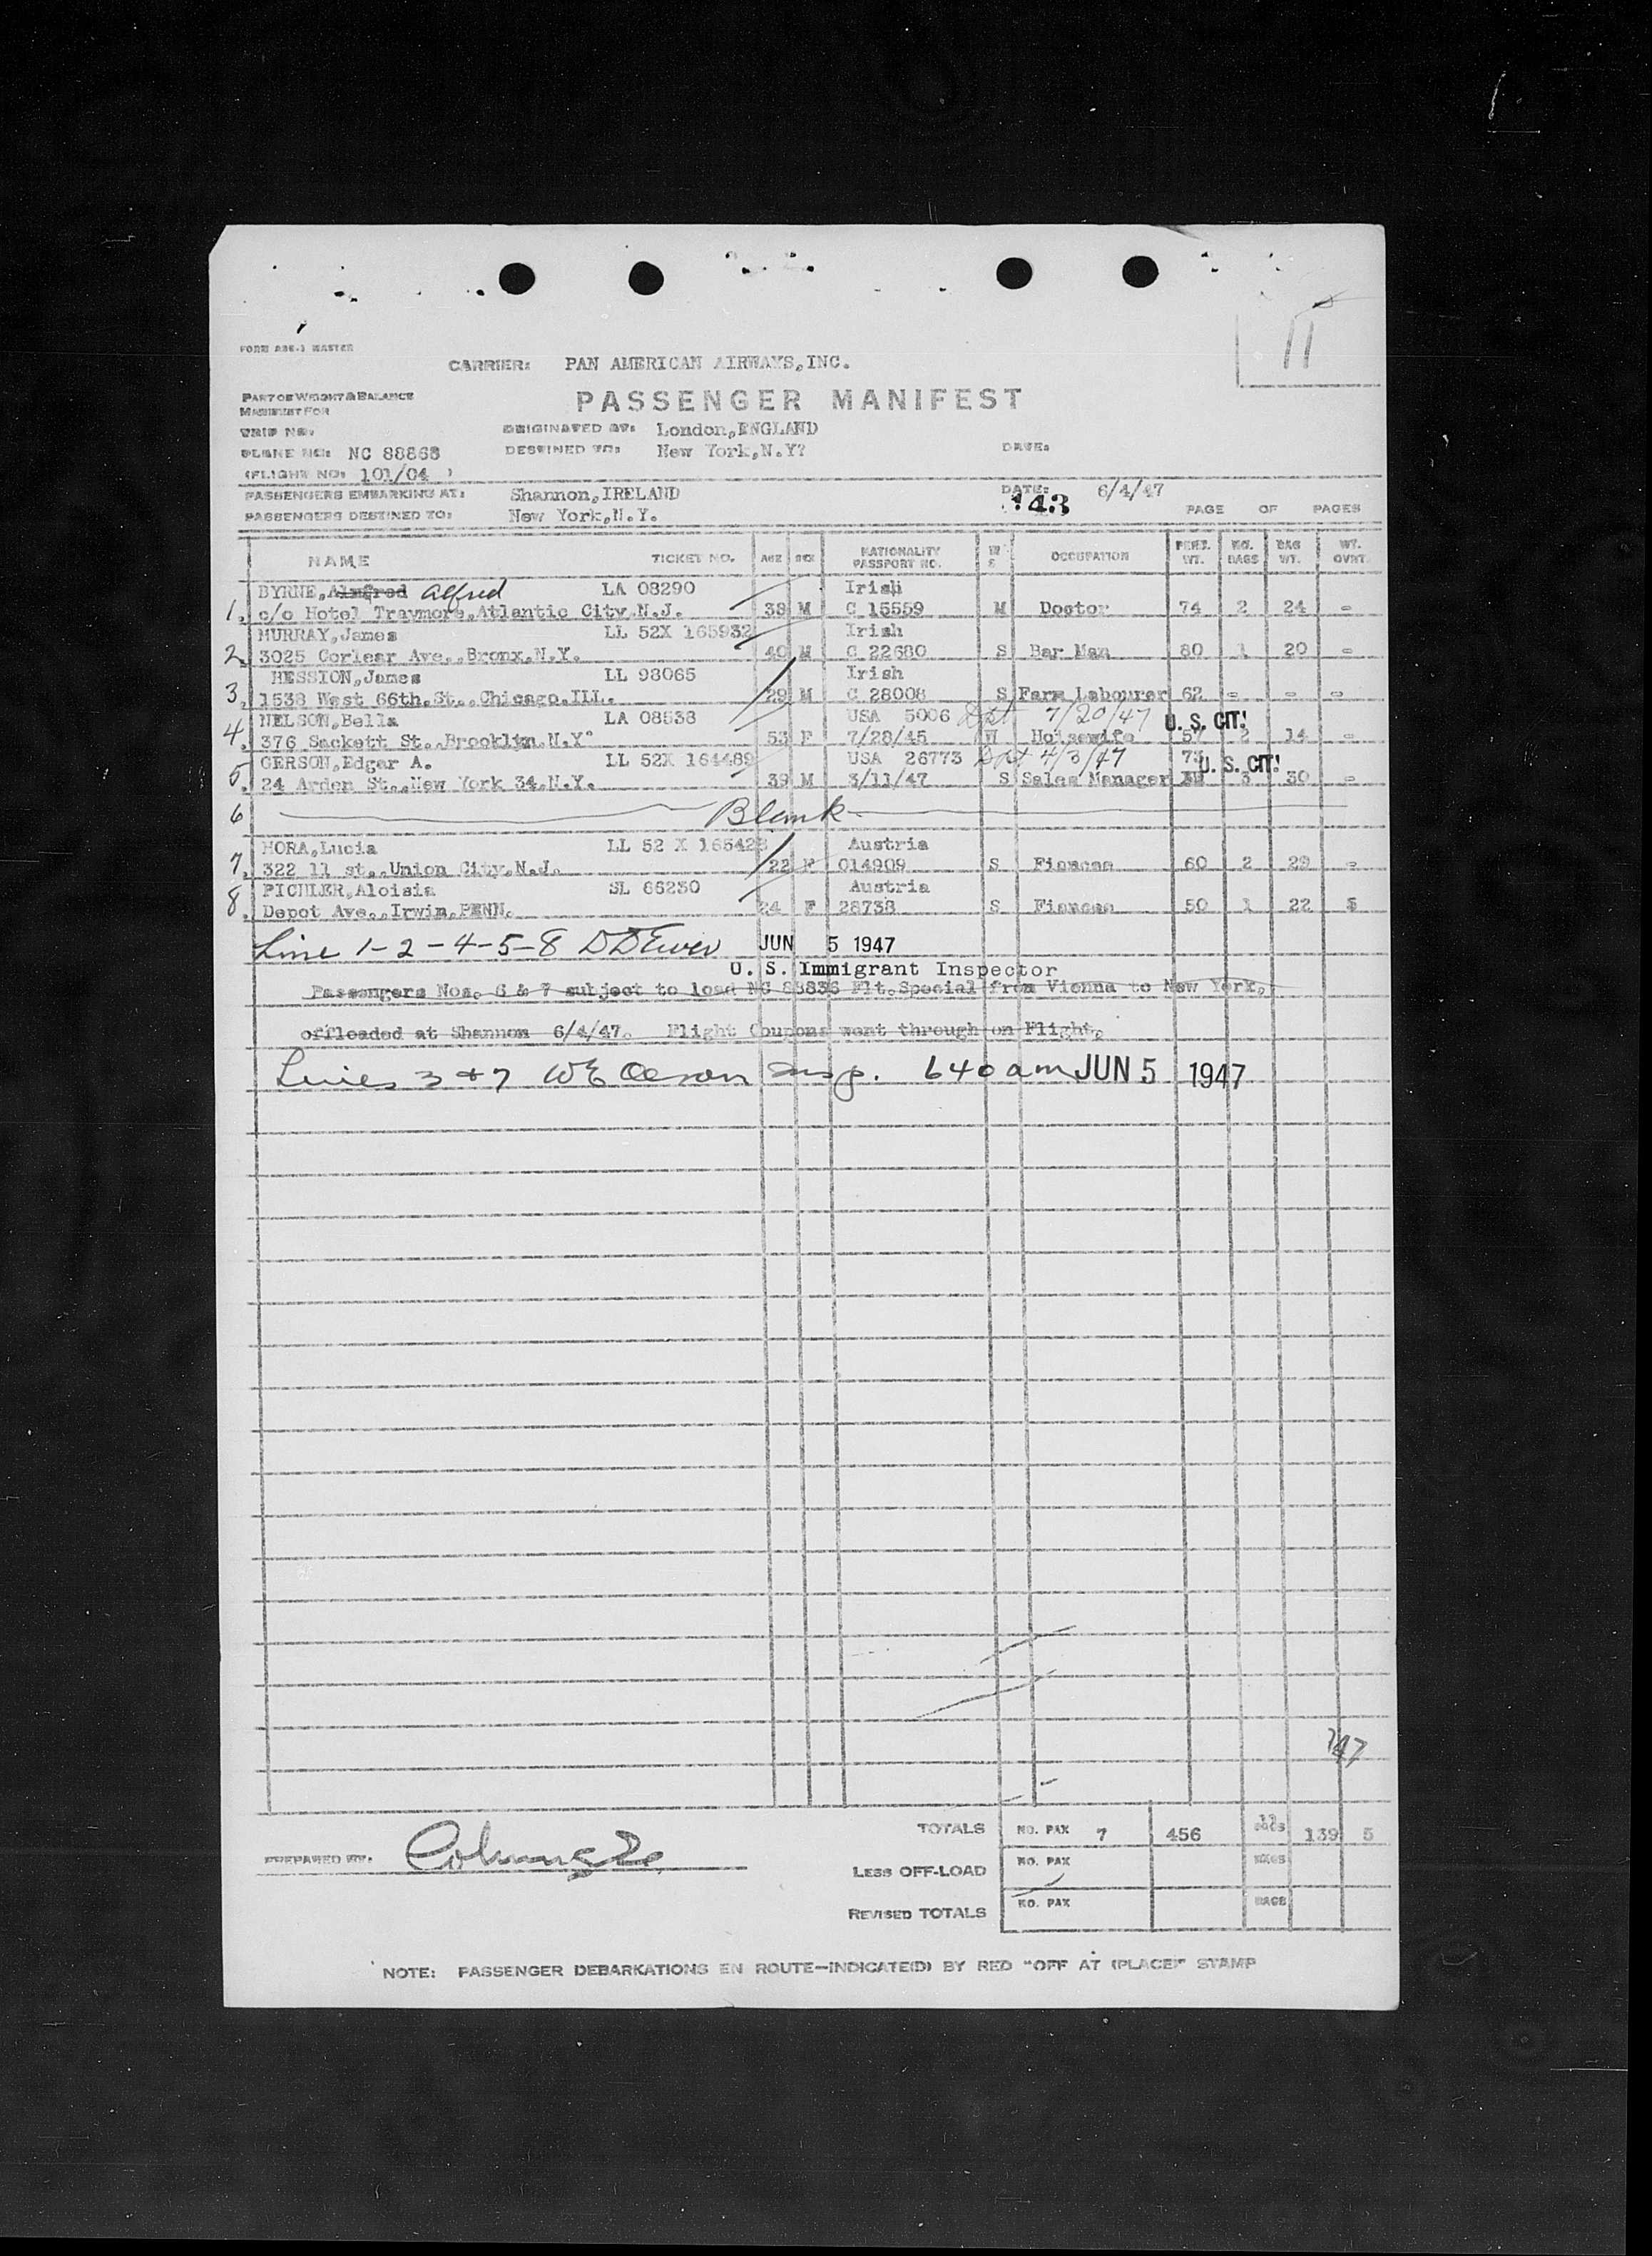 11
FORM ABE-3 MASTER
CARRIER: PAN AMERICAN AIRWAYS,INC.
PART OF WEIGHT & BALANCE
MANIFEST FOR
PASSENGER MANIFEST
TRIP NO:
ORIGINATED AT: London,ENGLAND
PLANE NO: NC 88868
DESTINED TO: New York,N.Y?
DATE:
(FLIGHT NO: 101/04 )
PASSENGERS EMBARKING AT: Shannon,IRELAND
DATE: 6/4/47
143
PASSENGERS DESTINED TO: New York,N.Y.
PAGE OF PAGES
NAME TICKET NO. AGE SEX NATIONALITY PASSPORT NO. OCCUPATION PERS. WT. NO. BAGS BAG WT. WT. OVRT.
BYRNE, Alfred LA 08290 Irish
1. c/o Hotel Traymore,Atlantic City,N.J. 38 M C 15559 M Doctor 74 2 24 -
MURRAY,James LL 52X 165932 Irish
2. 3025 Corlear Ave.,Bronx,N.Y. 40 M C 22680 S Bar Man 80 1 20 -
HESSION,James LL 98065 Irish
3. 1538 West 66th.St.,Chicago,ILL. 29 M C 28008 S Farm Labourer 62 - - -
NELSON,Bella LA 08538 USA 5006 Dpt 7/20/47 U. S. CIT!
4. 376 Sackett St.,Brooklyn.N.Y. 53 F 7/28/45 W Housewife 57 2 14 -
GERSON,Edgar A. LL 52X 164489 USA 26773 Dpt 4/3/47 73 U. S. CIT!
5. 24 Arden St.,New York 34,N.Y. 39 M 3/11/47 S Sales Manager 3 30 -
6 Blank
HORA,Lucia LL 52 X 165428 Austria
7. 322 11 st.,Union City,N.J. 22 F 014909 S Fiancee 60 2 29 -
PICHLER,Aloisia SL 66230 Austria
8. Depot Ave.,Irwin,PENN. 24 F 28738 S Fiancee 50 3 22 5
Line 1-2-4-5-8 JUN 5 1947
U. S. Immigrant Inspector
Passengers Nos. 6 & 7 subject to load NC 88836 Flt.Special from Vienna to New York,
offloaded at Shannon 6/4/47. Flight Coupons went through on Flight.
Lines 3 & 7 Insp. 640 am JUN 5 1947
TOTALS NO. PAX 7 456 13 BAGS 139 5
PREPARED BY:
LESS OFF-LOAD NO. PAX BAGS
REVISED TOTALS NO. PAX BAGS
NOTE: PASSENGER DEBARKATIONS EN ROUTE—INDICATE(D) BY RED "OFF AT (PLACE)" STAMP